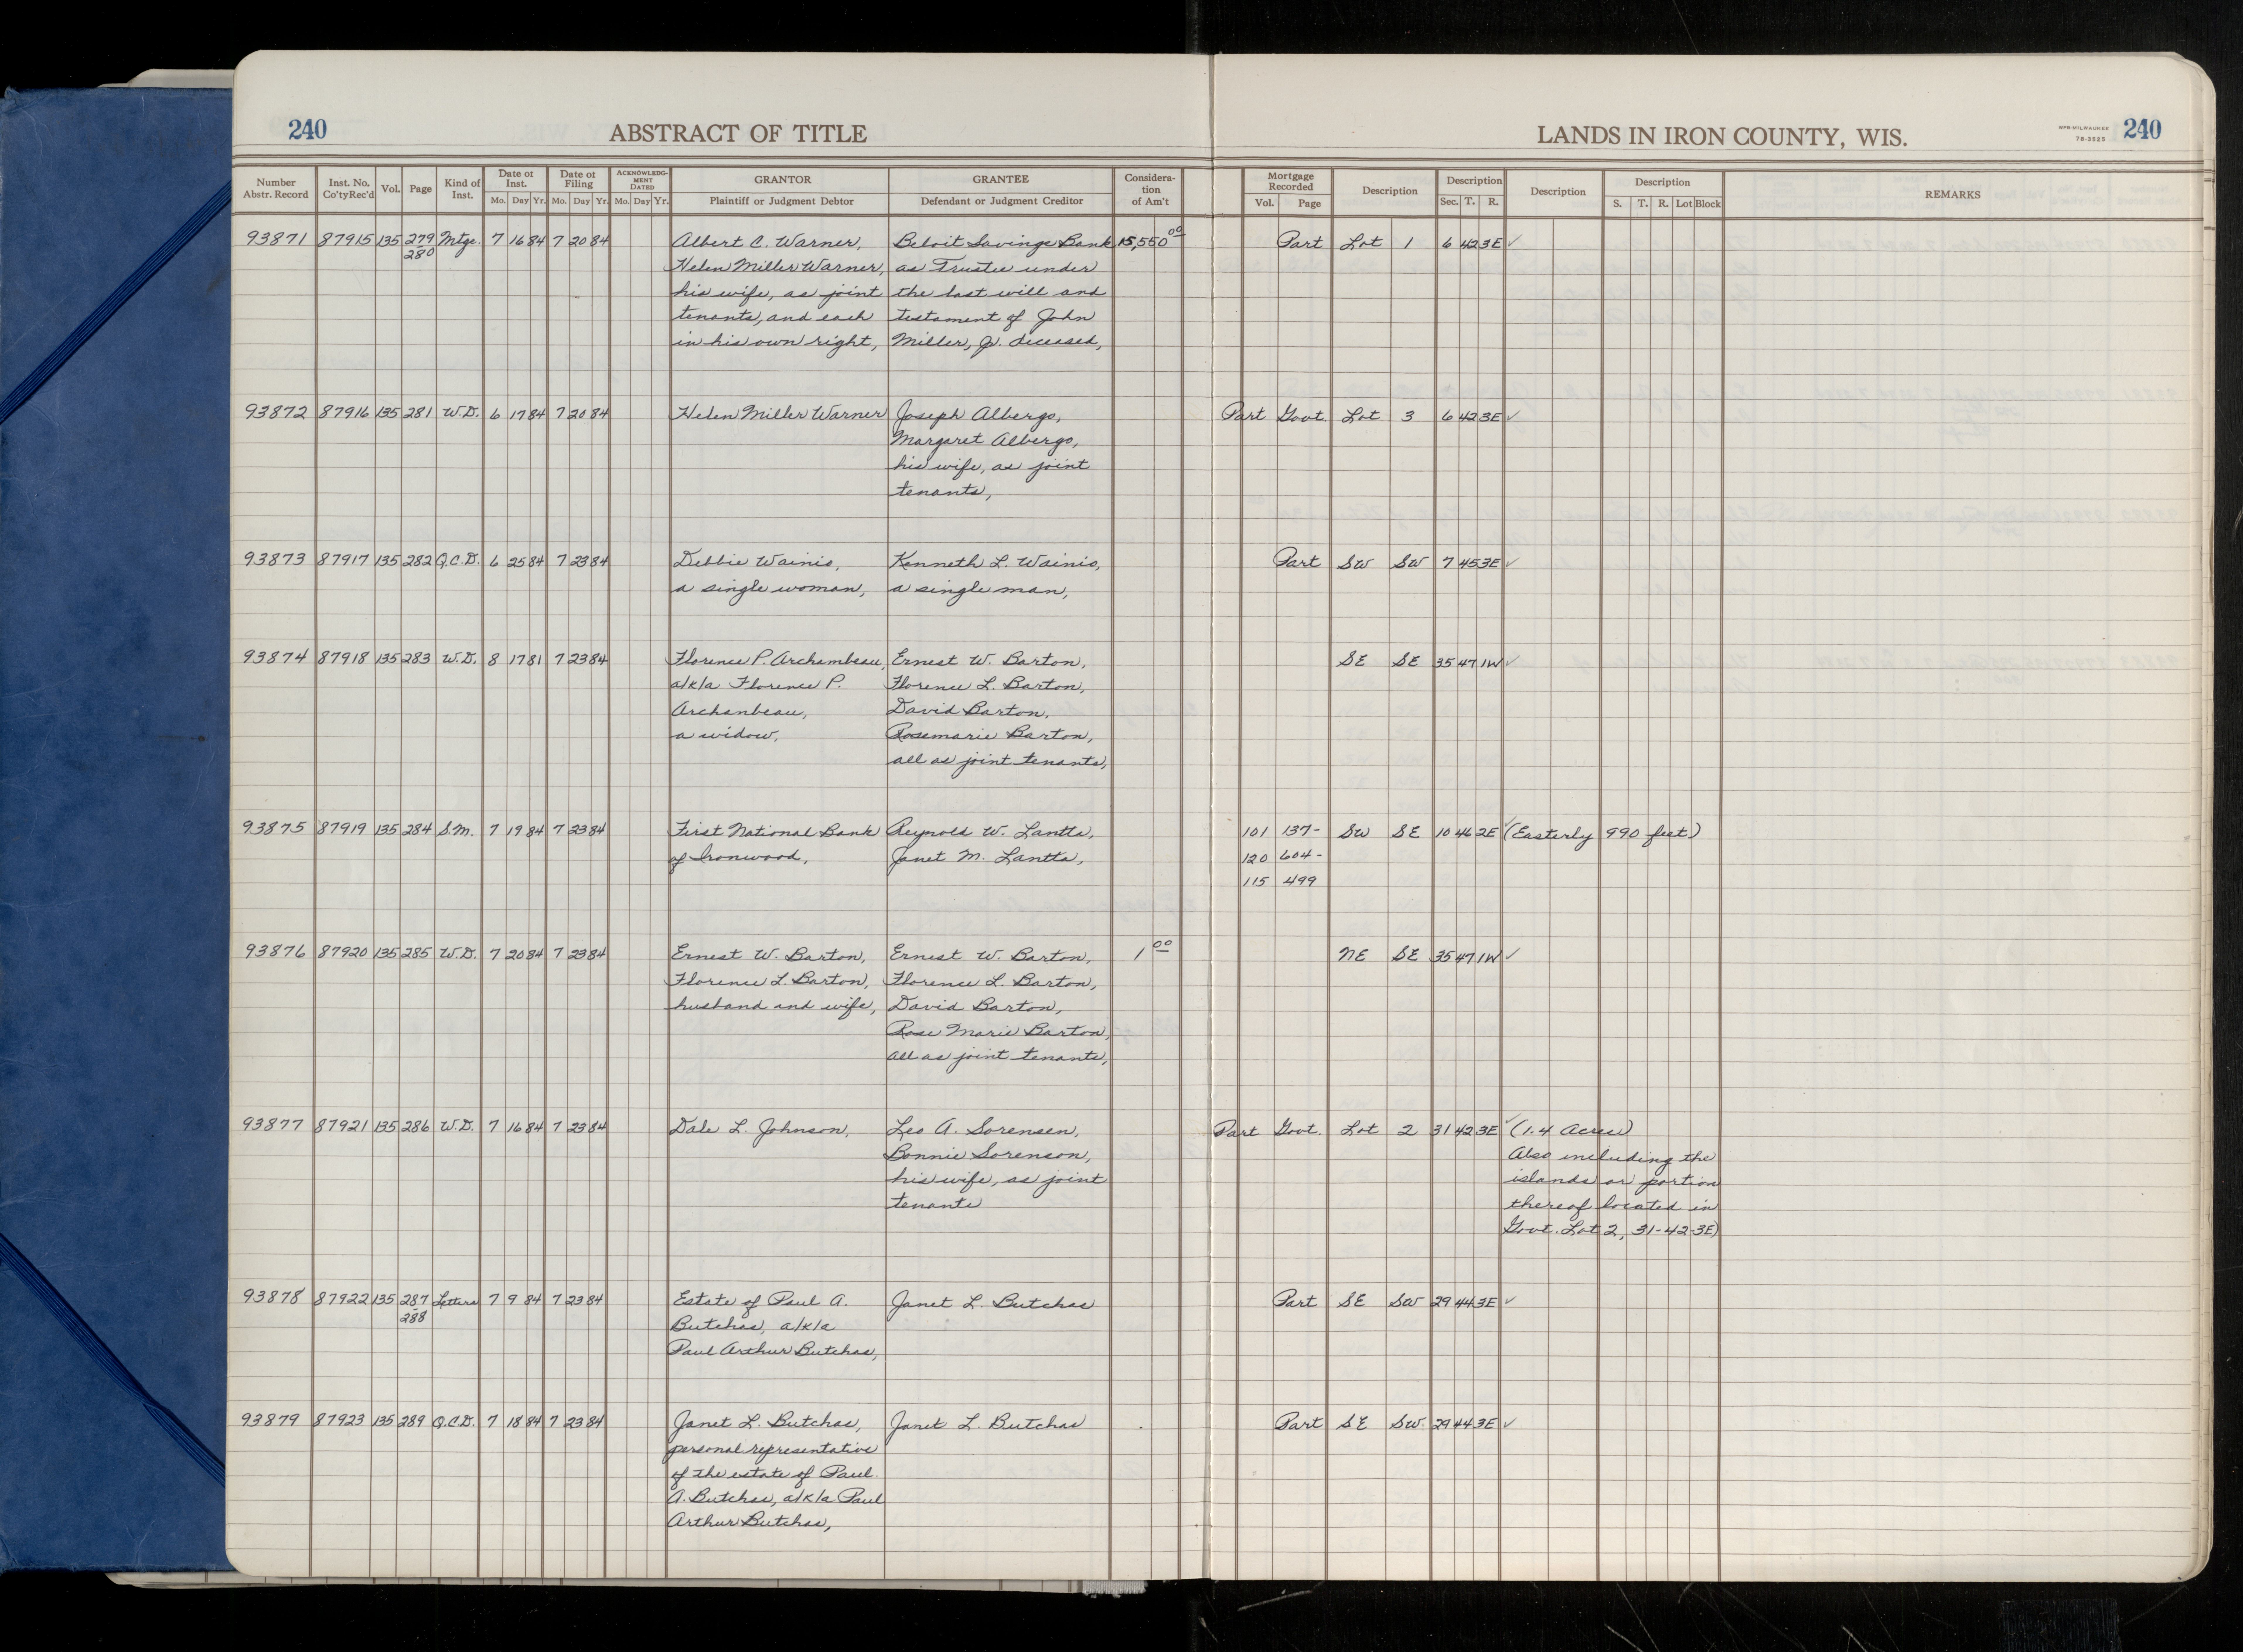 240 ABSTRACT OF TITLE LANDS IN IRON COUNTY, WIS. WPB-MILWAUKEE 78-3525 240
Number Abstr. Record Inst. No. Co'tyRec'd Vol. Page Kind of Inst. Date of Inst. Mo. Day Yr. Date of Filing Mo. Day Yr. ACKNOWLEDGMENT DATED Mo. Day Yr. GRANTOR Plaintiff or Judgment Debtor GRANTEE Defendant or Judgment Creditor Consideration of Am't Mortgage Recorded Vol. Page Description Description Sec. T. R. Description Description S. T. R. Lot Block REMARKS
93871 87915 135 279 Mtge. 7 16 84 7 20 84 Albert C. Warner, Beloit Savings Bank 15,550 00 Part Lot 1 6 42 3E ✓
280 Helen Miller Warner, as Trustee under
his wife, as joint the last will and
tenants, and each testament of John
in his own right, Miller, Jr. deceased,
93872 87916 135 281 W.D. 6 17 84 7 20 84 Helen Miller Warner Joseph Albergo, Part Govt. Lot 3 6 42 3E ✓
Margaret Albergo,
his wife, as joint
tenants,
93873 87917 135 282 Q.C.D. 6 25 84 7 23 84 Debbie Wainio, Kenneth L. Wainio, Part SW SW 7 45 3E ✓
a single woman, a single man,
93874 87918 135 283 W.D. 8 17 81 7 23 84 Florence P. Archambeau, Ernest W. Barton, SE SE 35 47 1W ✓
a/k/a Florence P. Florence L. Barton,
Archanbeau, David Barton,
a widow, Rosemarie Barton,
all as joint tenants,
93875 87919 135 284 S.M. 7 19 84 7 23 84 First National Bank Reynold W. Lantta, 101 137- SW SE 10 46 2E ✓ (Easterly 990 feet)
of Ironwood, Janet M. Lantta, 120 604-
115 499
93876 87920 135 285 W.D. 7 20 84 7 23 84 Ernest W. Barton, Ernest W. Barton, 1 00 NE SE 35 47 1W ✓
Florence L. Barton, Florence L. Barton,
husband and wife, David Barton,
Rose Marie Barton,
all as joint tenants,
93877 87921 135 286 W.D. 7 16 84 7 23 84 Dale L. Johnson, Leo A. Sorensen, Part Govt. Lot 2 31 42 3E ✓ (1.4 Acres)
Bonnie Sorenson, Also including the
his wife, as joint islands or portion
tenants thereof located in
Govt. Lot 2, 31-42-3E)
93878 87922 135 287 Letters 7 9 84 7 23 84 Estate of Paul A. Janet L. Butchas Part SE SW 29 44 3E ✓
288 Butchas, a/k/a
Paul Arthur Butchas,
93879 87923 135 289 Q.C.D. 7 18 84 7 23 84 Janet L. Butchas, Janet L. Butchas Part SE SW. 29 44 3E ✓
personal representative
of the estate of Paul.
A. Butchas, a/k/a Paul
Arthur Butchas,